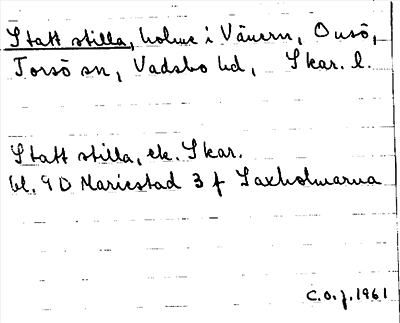 Statt stilla, holme i Vänern, Onsö,
Torsö sn, Vadsbo hd, Skar. l.
Statt stilla, ek. Skar.
bl. 9 D Mariestad 3 f Laxholmarna
C.O.J. 1961